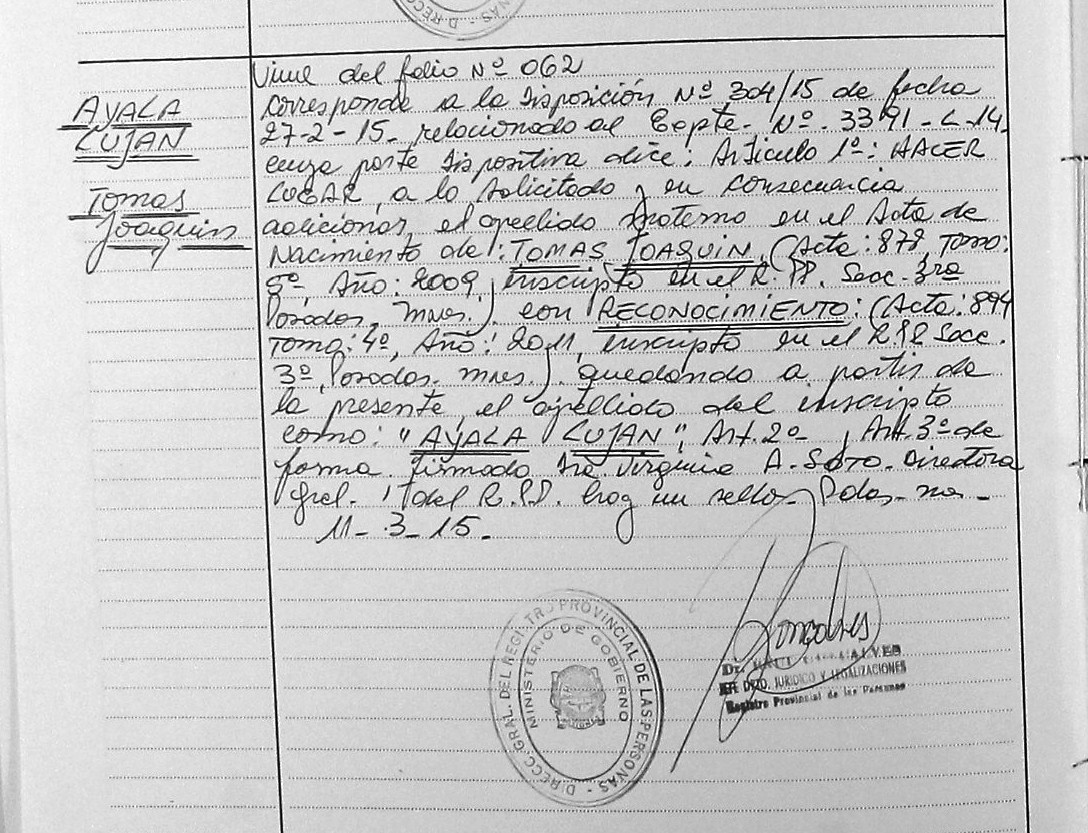 DIRECC
AYALA
LUJAN
Tomas
Joaquin
Viene del folio Nº 062
corresponde a la Disposición Nº 304/15 de fecha
27-2-15- relacionado al Expte. Nº. 3391-L-14.
cuya parte dispositiva dice: Articulo 1º: HACER
LUGAR, a lo solicitado y en consecuencia
adicionar, el apellido materno en el Acta de
Nacimiento de: TOMAS JOAQUIN, (Acta: 878, Tomo:
5º Año: 2009, inscripto en el R.PP. Secc. 3ra
Posadas, Mnes.) con RECONOCIMIENTO: (Acta: 894
Tomo: 4º, Año: 2011, inscripto en el R.P.P Secc.
3º, Posadas. Mnes.). quedando a partir de
la presente, el apellido del inscripto
como: "AYALA LUJAN", Art. 2º , Art. 3º de
forma. firmado Dra Virginia A. SOTO. Directora
Gral. del R.P.P. hay un sello. Pdas- ns-
11-3-15.
DIRECC. GRAL. DEL REGISTRO PROVINCIAL DE LAS PERSONAS -
MINISTERIO DE GOBIERNO
Dr.
JEFE DPTO. JURIDICO Y LEGALIZACIONES
Registro Provincial de las Personas